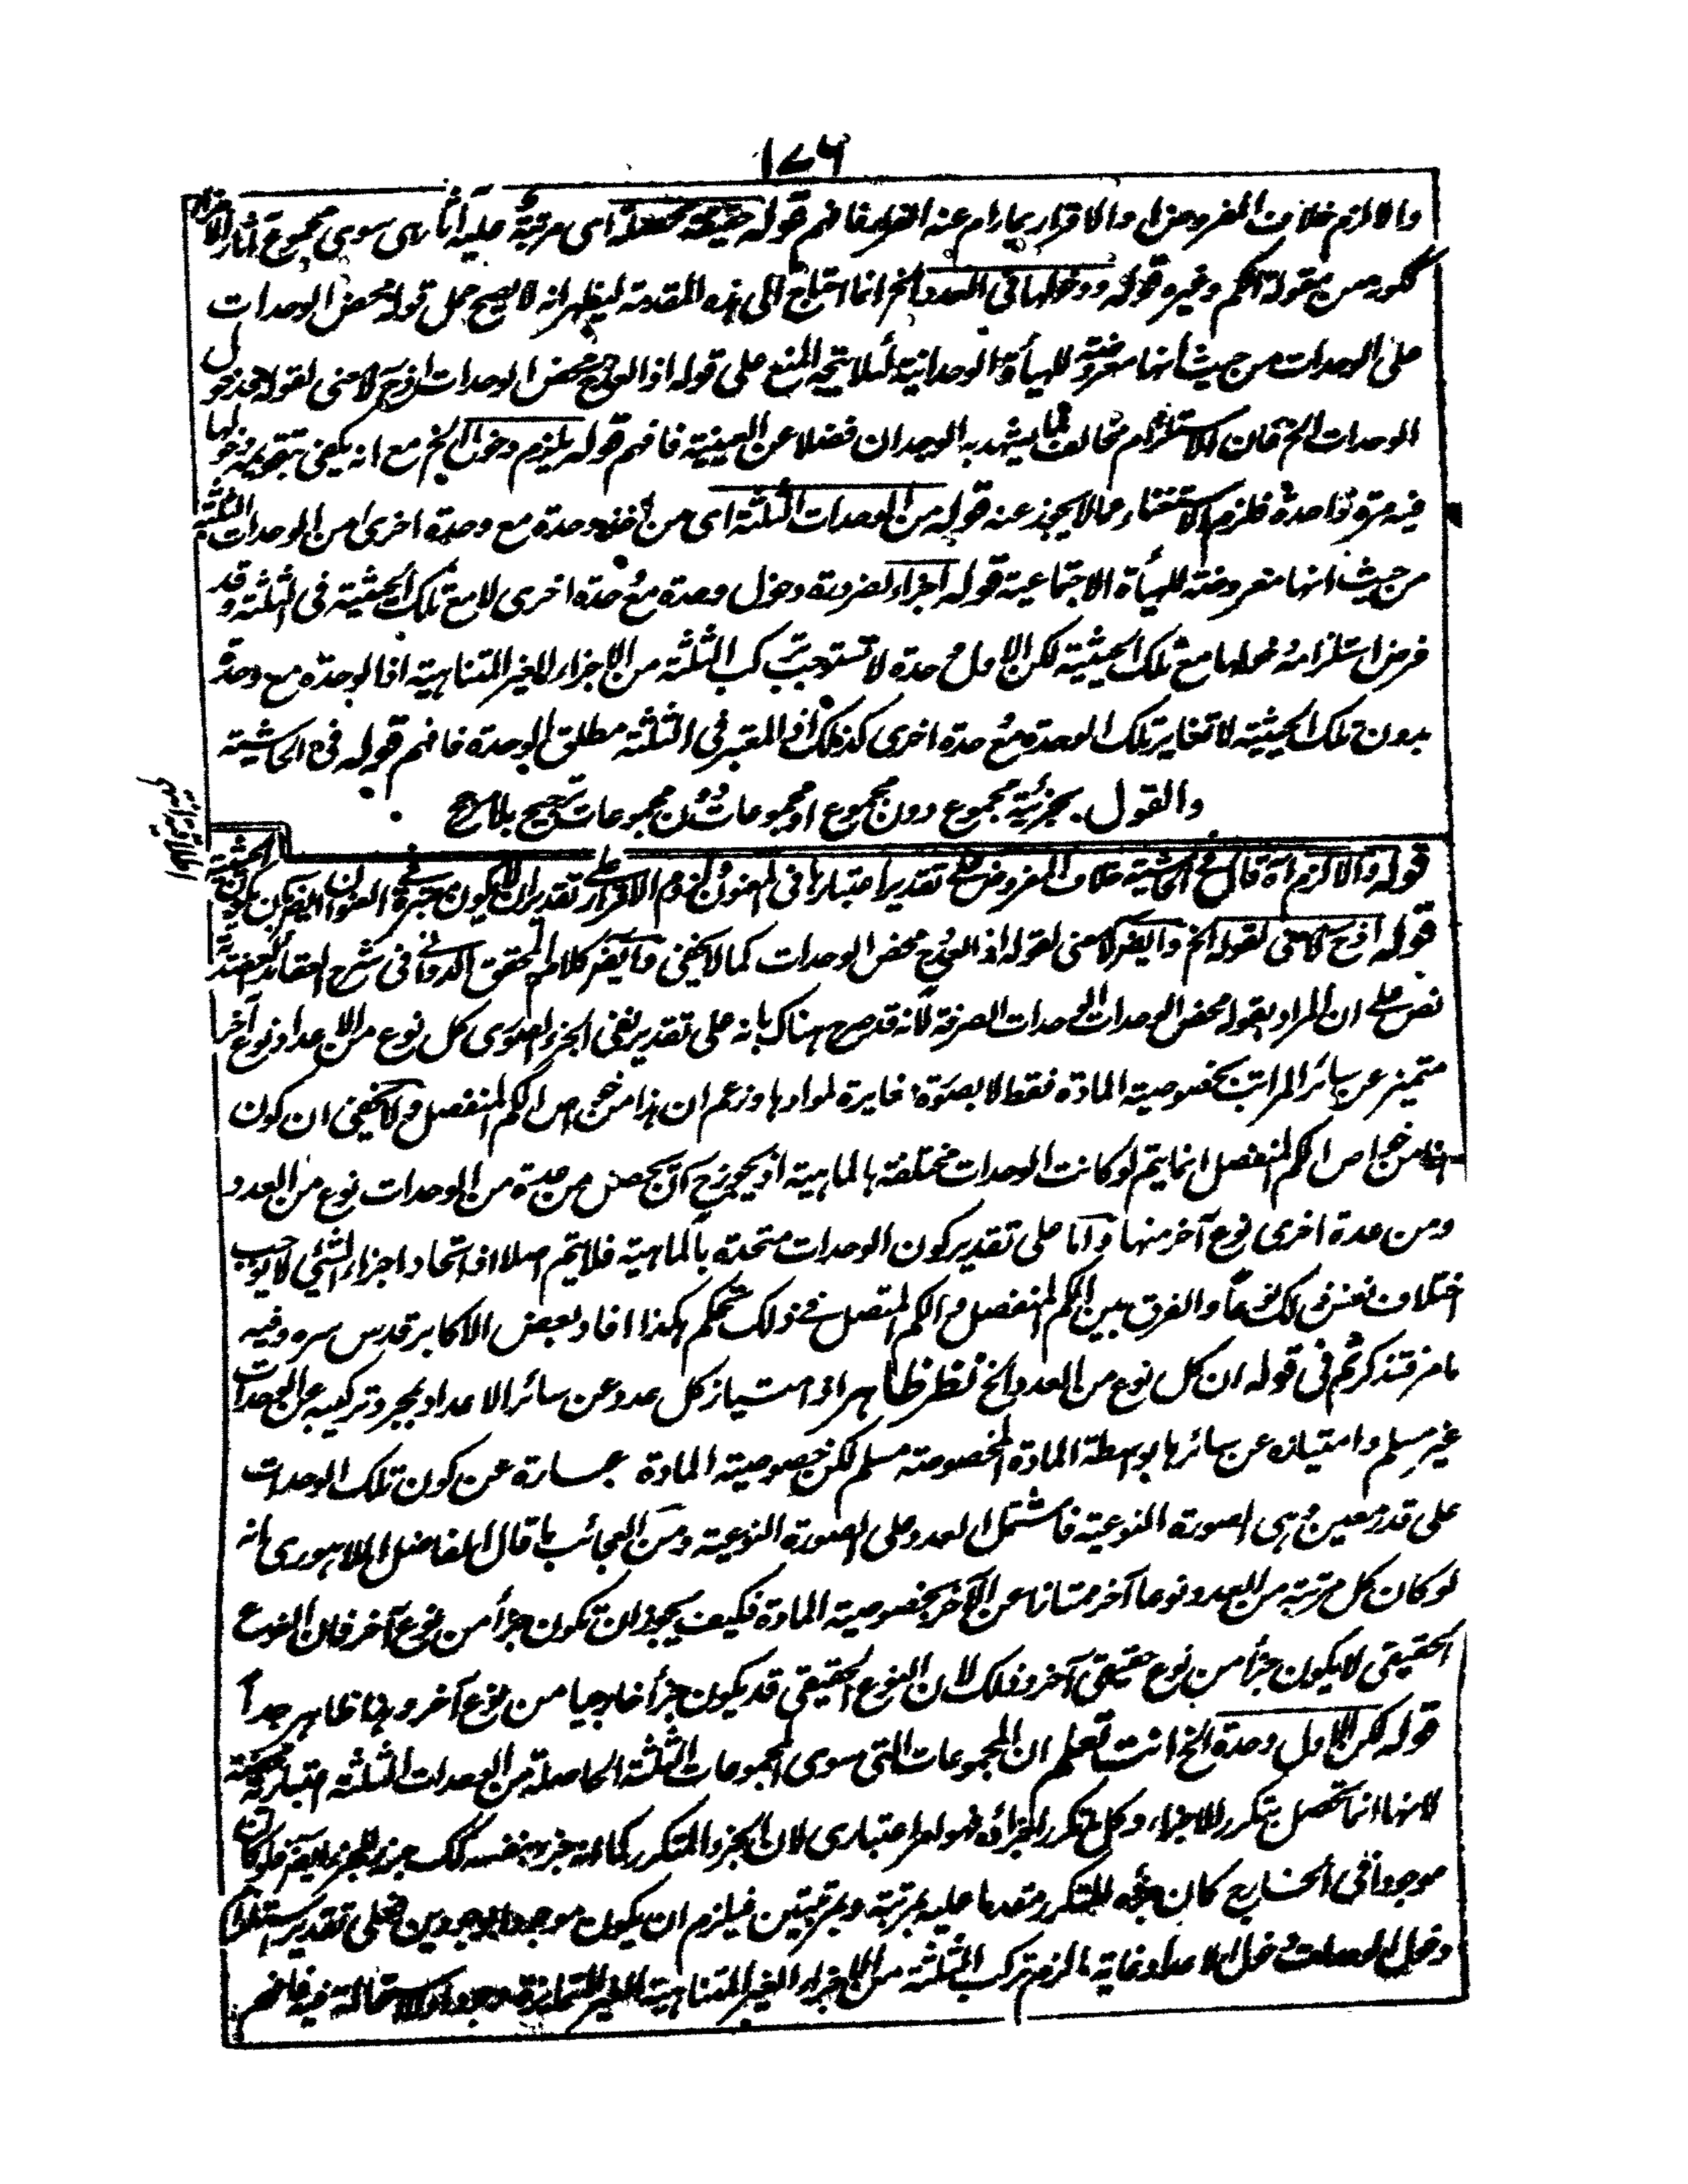 ١٧٦
والا لزم خلاف المفروض او الاقرار بما رام عنه الفرار فافهم قوله حقيقة محصلة اى مرتبة عليه آثار هى سوى مجموع آثار الاجزاء
ككونه من مقولة الكم وغيره قوله ودخولها فى العدد الخ انما احتاج الى هذه المقدمة ليظهر انه لا يصح حمل قوله محض الوحدات
على الوحدات من حيث انها معروضة للهيأة الوحدانية لئلا يتجه المنع على قوله اذ العدد ح محض الوحدات اذ ح لا معنى لقوله فدخول
الوحدات الخ فان الاستلزام مخالف لما يشهد به الوجدان فضلا عن العينية فافهم قوله يلزم دخول الخ مع انه يكفى تقويمه دخولها
فيه مرة واحدة فلزم الاستغناء عما لا يجوز عنه قوله من الوحدات الثلثة اى من اخذ وحدة مع وحدة اخرى من الوحدات الثلثة
من حيث انها معروضة للهيأة الاجتماعية قوله اجزاء لضرورة دخول وحدة مع وحدة اخرى لا مع تلك الحيثية فى الثلثة وقد
فرض استلزامه دخولها مع تلك الحيثية لكن الاول وحدة لا تستوجب تركب الثلثة من الاجزاء الغير المتناهية اذ الوحدة مع وحدة
بدون تلك الحيثية لا تغاير تلك الوحدة مع وحدة اخرى كذلك اذ المعتبر فى الثلثة مطلق الوحدة فافهم قوله فى الحاشية
والقول بجزئية مجموع دون مجموع او مجموعات دون مجموعات ترجيح بلا مرجح
قوله والا لزم آه قال فى الحاشية خلاف المفروض على تقدير اعتبارها فى المعنون لزم الاقرار على تقدير ان لا يكون معتبرة فى العنوان ايضا
قوله اذ ح لا معنى لقوله الخ وايضا لا معنى لقوله اذ العدد ح محض الوحدات كما لا يخفى وايضا كلام المحقق الدوانى فى شرح العقائد العضدية
نص على ان المراد بقوله محض الوحدات الوحدات الصرفة لانه قد صرح هناك بانه على تقدير نفى الجزء الصورى كل نوع من الاعداد نوع آخر
متميز عن سائر المراتب بخصوصية المادة فقط لا بصورة مغايرة لموادها وزعم ان هذا من خواص الكم المنفصل ولا يخفى ان كون
هذا من خواص الكم المنفصل انما يتم لو كانت الوحدات مختلفة بالماهية اذ يجوز ح ان يحصل من عدة من الوحدات نوع من العدد
ومن عدة اخرى نوع آخر منها واما على تقدير كون الوحدات متحدة بالماهية فلا يتم اصلا اذ اتحاد اجزاء الشئى لا يوجب
اختلاف نفس ذلك نوعا والفرق بين الكم المنفصل والكم المتصل فى ذلك تحكم هكذا افاد بعض الاكابر قدس سره وفيه
ما مر فتذكر ثم فى قوله ان كل نوع من العدد الخ نظر ظاهر اذ امتياز كل عدد عن سائر الاعداد بمجرد تركيبه عن الوحدات
غير مسلم وامتيازه عن سائرها بواسطة المادة المخصوصة مسلم لكن خصوصية المادة عبارة عن كون تلك الوحدات
على قدر معين وهى الصورة النوعية فاشتمل العدد على الصورة النوعية ومن العجائب ما قال الفاضل اللاهورى انه
لو كان كل مرتبة من العدد نوعا آخر ممتازا عن الآخر بخصوصية المادة فكيف يجوز ان تكون جزأ من نوع آخر فان النوع
الحقيقى لا يكون جزأ من نوع حقيقى آخر وذلك لان النوع الحقيقى قد يكون جزأ خارجيا من نوع آخر وهذا ظاهر جدا
قوله لكن الاول وحدة الخ انت تعلم ان المجموعات التى سوى المجموعات الثلثة الحاصلة من الوحدات الثلثة اعتبارية محضة
لانها انما تحصل بتكرر الاجزاء وكل ما يتكرر اجزائه فهو امر اعتبارى لان الجزء المتكرر كما انه جزء بنفسه كك جزء للجزء ايضا فلو كان
موجودا فى الخارج كان جزئه المتكرر متقدما عليه بمرتبة وبمرتبتين فيلزم ان يكون موجودا بوجودين فعلى تقدير استلزام
دخول الوحدات دخول الاعداد غاية ما لزم تركب الثلثة من الاجزاء الغير المتناهية الغير المتمايزة وجودا ولا استحالة فيه فافهم